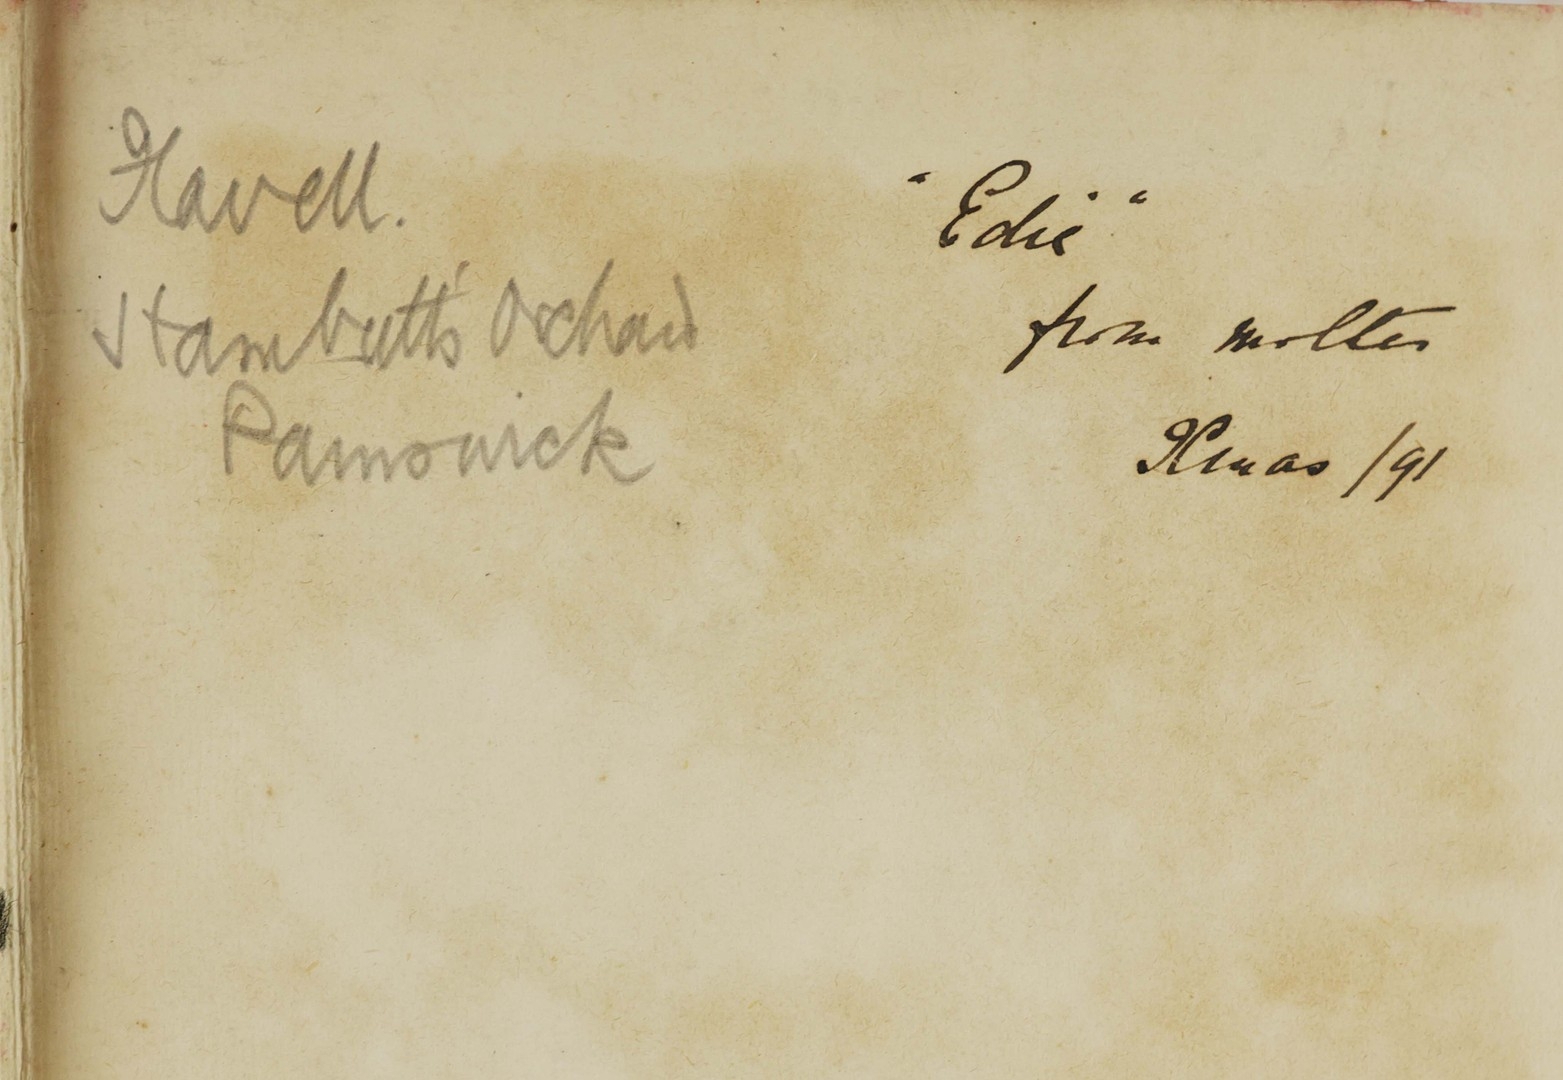 Havell.
Stambutt's Orchard
Painswick
"Edie"
from mother
Xmas /91